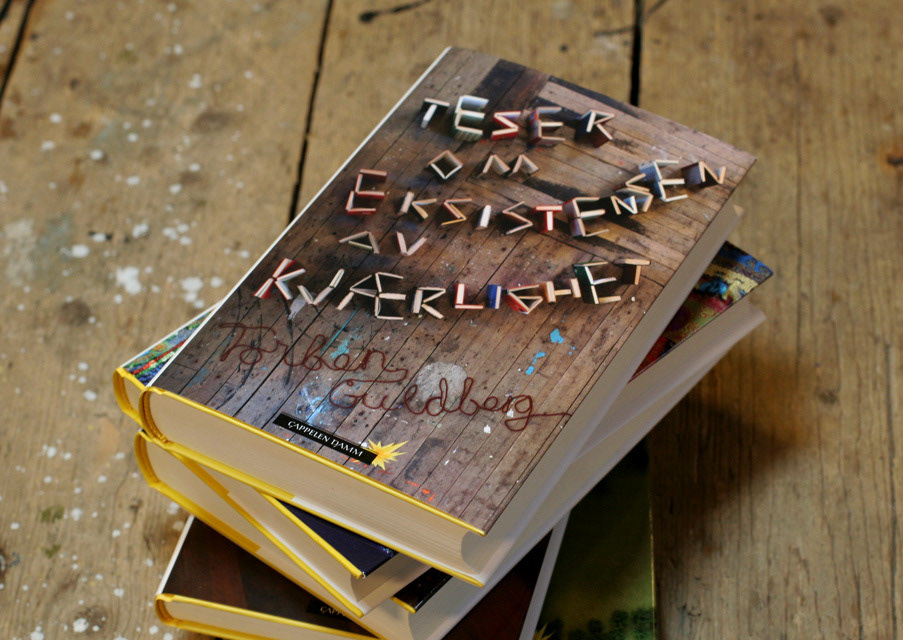 TESER
OM
EKSISTENSEN
AV
KJÆRLIGHET
Torben
Guldberg
CAPPELEN DAMM